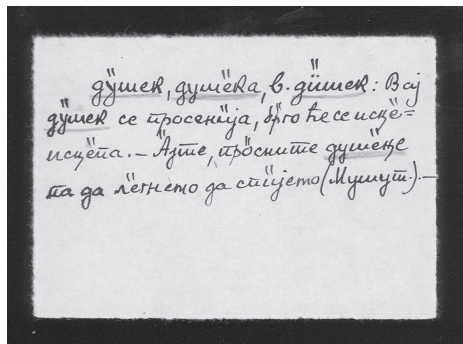 ду̏шек, душе̏ка, в. ди̏шек: Вај
ду̏шек се просени̏ја, бр̏го ће се исце̏=
исце̏па. – А̏јте, про̏сните душе̏ке
па да ле̏гнето да спи̏јето (Мушут.). –